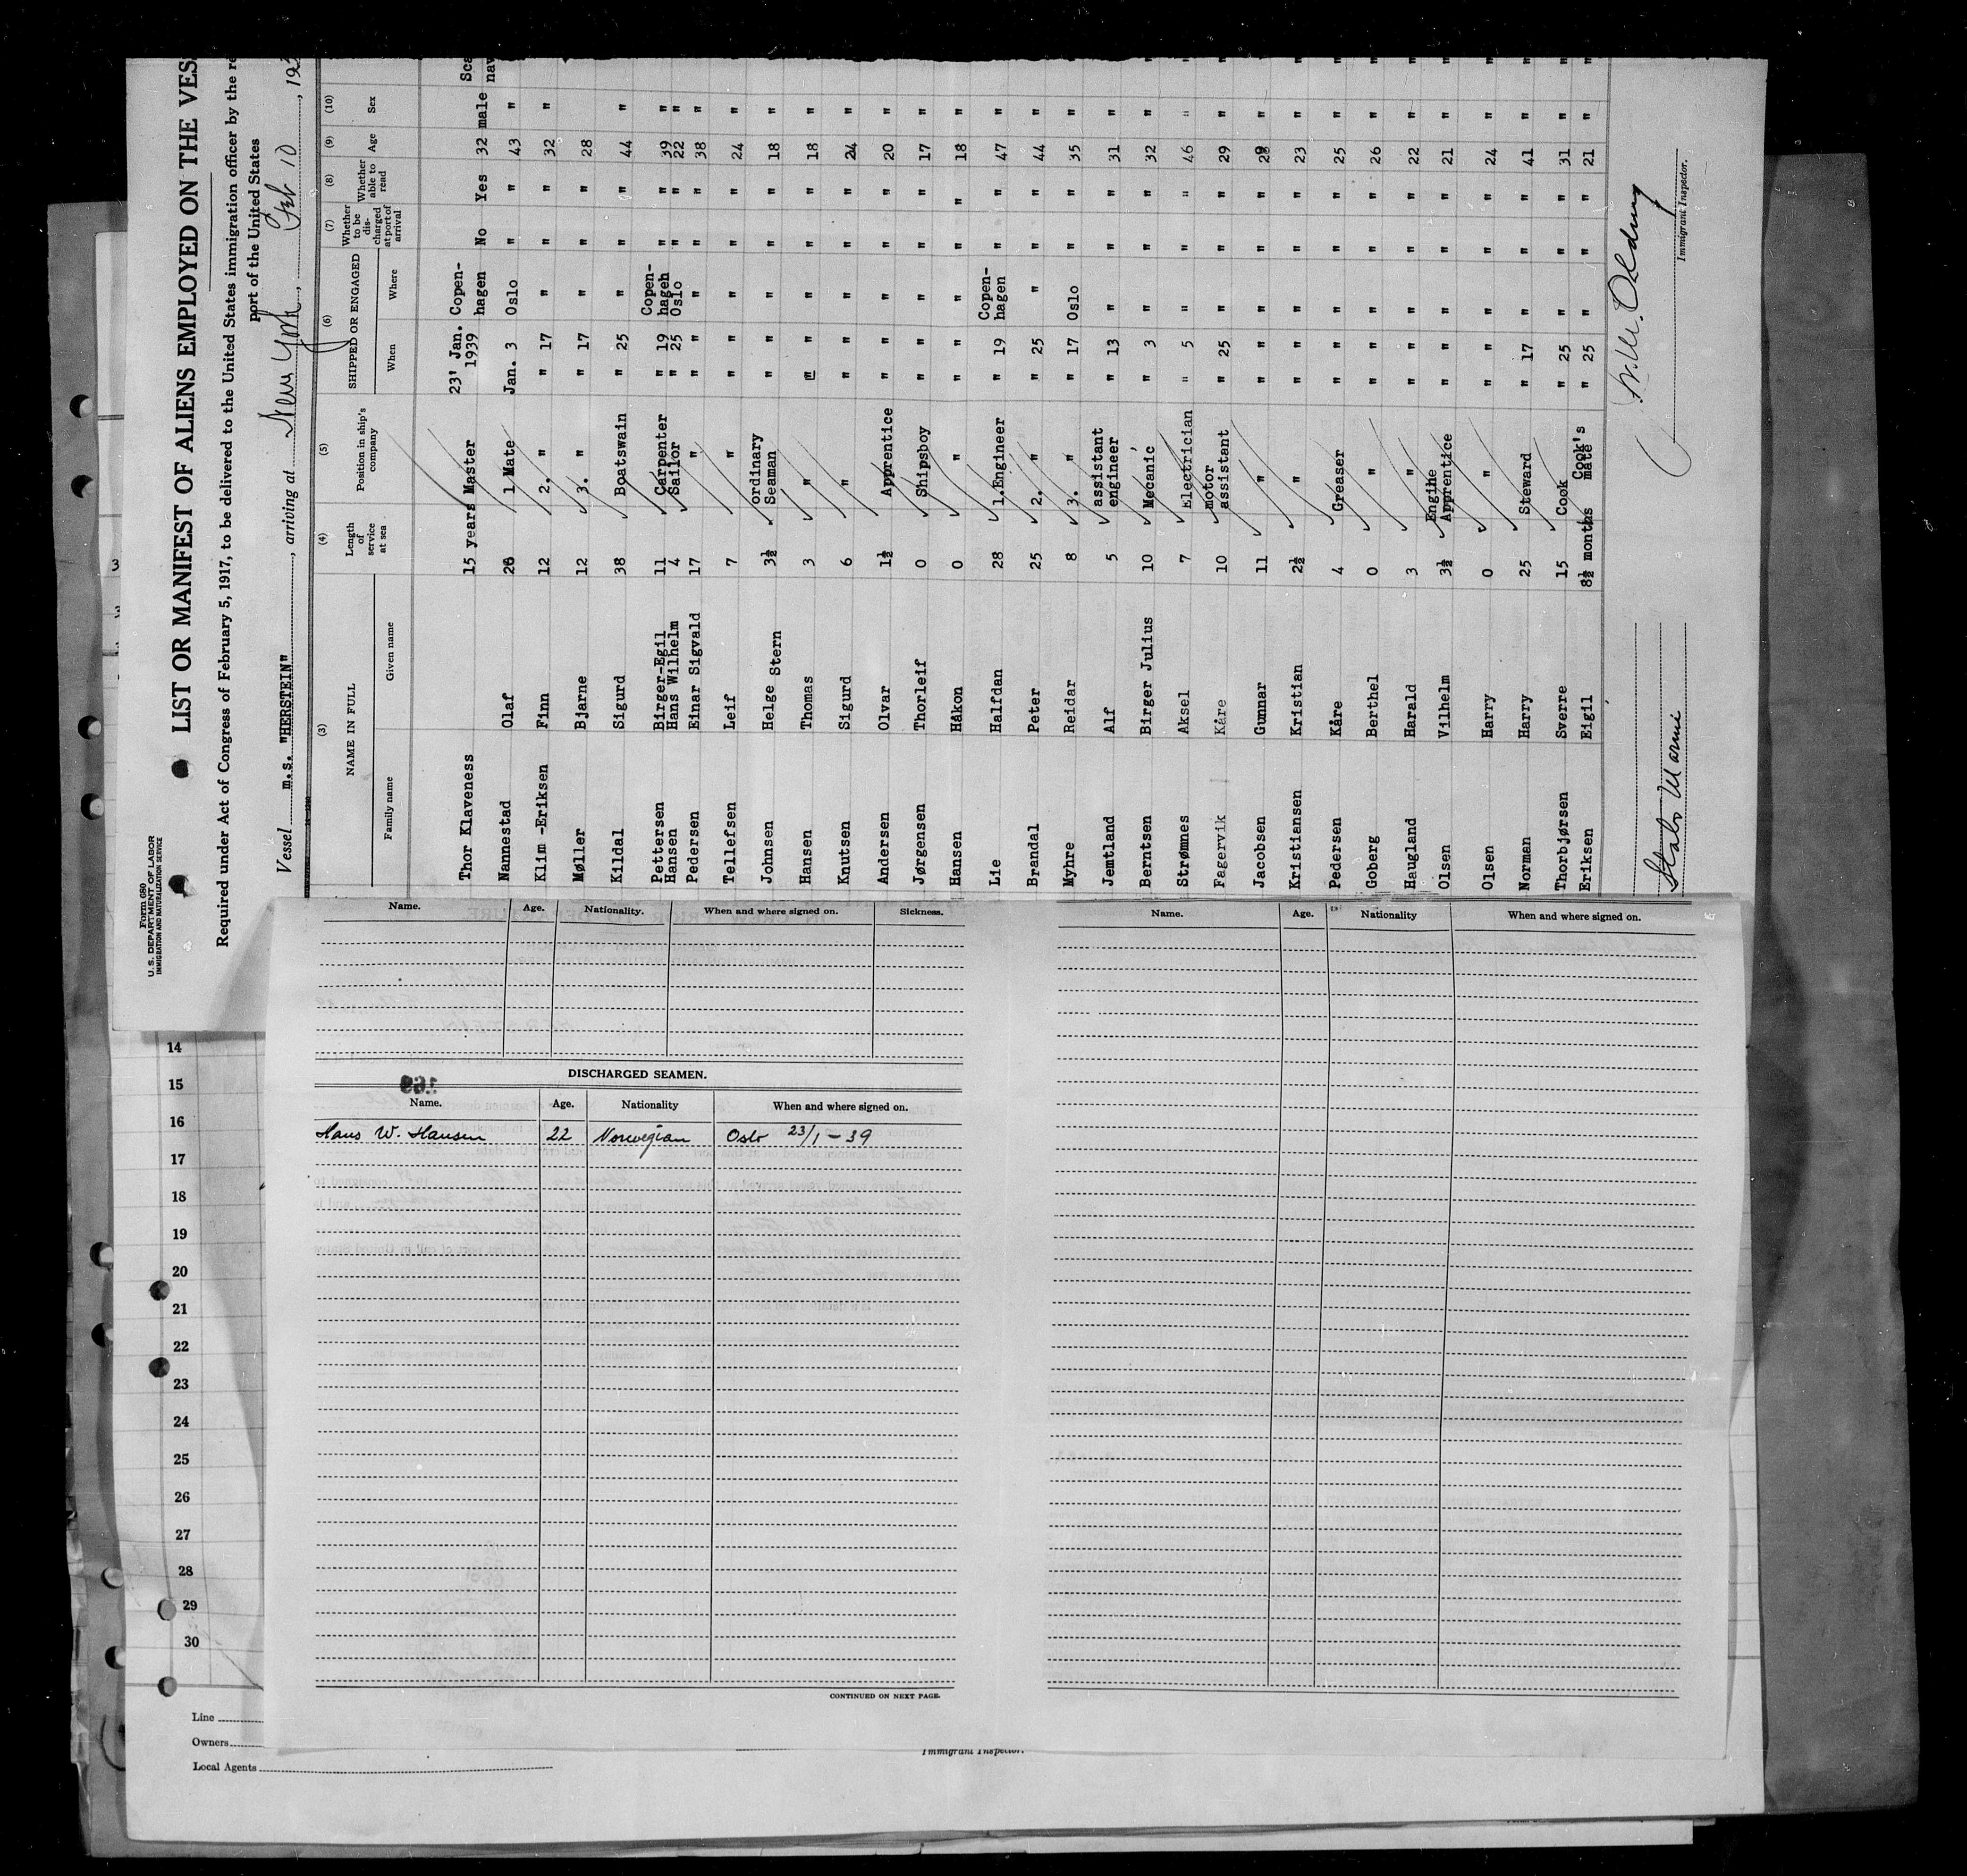 Form 680
U.S. DEPARTMENT OF LABOR
IMMIGRATION AND NATURALIZATION SERVICE
LIST OR MANIFEST OF ALIENS EMPLOYED ON THE VES
Required under Act of Congress of February 5, 1917, to be delivered to the United States immigration officer by the re
port of the United States
Vessel m.s. "HERSTEIN", arriving at New York, Feb 10, 193
(3) (4) (5) (6) (7) (8) (9) (10)
NAME IN FULL Length of service at sea Position in ship's company SHIPPED OR ENGAGED Whether to be discharged at port of arrival Whether able to read Age Sex
Family name Given name When Where
Thor Klaveness 15 years Master 23' Jan. 1939 Copen-hagen No Yes 32 male Sca nav
Nannestad Olaf 26 1 Mate Jan. 3 Oslo " " 43 "
Klim -Eriksen Finn 12 2. " " 17 " " " 32 "
Møller Bjarne 12 3. " " 17 " " " 28
Kildal Sigurd 38 Boatswain " 25 " " " 44 "
Pettersen Birger-Egil 11 Carpenter " 19 Copen-hagen " " 39 "
Hansen Hans Wilhelm 4 Sailor " 25 Oslo " " 22 "
Pedersen Einar Sigvald 17 " " " " " " 38 "
Tellefsen Leif 7 " " " " " " 24 "
Johnsen Helge Stern 3½ ordinary Seaman " " " " " 18 "
Hansen Thomas 3 " " " " " " 18 "
Knutsen Sigurd 6 " " " " " " 24 "
Andersen Olvar 1½ Apprentice " " " " " 20 "
Jørgensen Thorleif 0 Shipsboy " " " " " 17 "
Hansen Håkon 0 " " " " " " 18 "
Lie Halfdan 28 1.Engineer " 19 Copen-hagen " " 47 "
Brandal Peter 25 2. " " 25 " " " 44 "
Myhre Reidar 8 3. " " 17 Oslo " " 35 "
Jemtland Alf 5 assistant engineer " 13 " " " 31 "
Berntsen Birger Julius 10 Mecanic " 3 " " " 32 "
Strømnes Aksel 7 Electrician " 5 " " " 46 "
Fagervik Kåre 10 motor assistant " 25 " " " 29 "
Jacobsen Gunnar 11 " " " " " " 28 "
Kristiansen Kristian 2½ " " " " " " 23 "
Pedersen Kåre 4 Greaser " " " " " 25 "
Goberg Berthel 0 " " " " " " 26 "
Haugland Harald 3 " " " " " " 22 "
Olsen Vilhelm 3½ Engine Apprentice " " " " " 21 "
Olsen Harry 0 " " " " " " 24 "
Norman Harry 25 Steward " 17 " " " 41 "
Thorbjørsen Sverre 15 Cook " 25 " " " 31 "
Eriksen Eigil 8½ months Cook's mate " 25 " " " 21 "
Immigrant Inspector.
Name. Age. Nationality. When and where signed on. Sickness.
DISCHARGED SEAMEN.
169
Name. Age. Nationality When and where signed on.
Hans W. Hansen 22 Norwegian Oslo 23/1 - 39
CONTINUED ON NEXT PAGE.
Name. Age. Nationality When and where signed on.
14
15
16
17
18
19
20
21
22
23
24
25
26
27
28
29
30
Line
Owners
Local Agents
Immigrant Inspector.